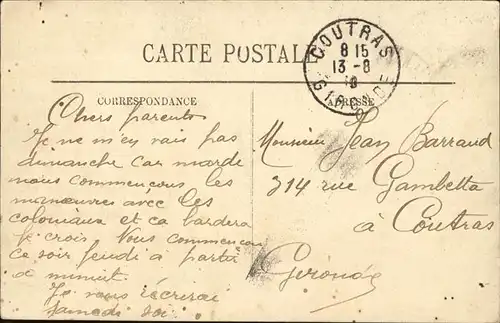 CARTE POSTALE
COUTRAS
8 15
13 - 8
GIRONDE
CORRESPONDANCE
ADRESSE
Chers parents
Je ne m'en vais pas
dimanche car marde
nous commençons les
manœuvres avec les
coloniaux et ca bardera
Je crois Nous commencon
ce soir Jeudi a partir
de minuit
Je vous écrirai
Samedi soir
Monsieur Jean Barraud
314 rue Gambetta
à Coutras
Gironde